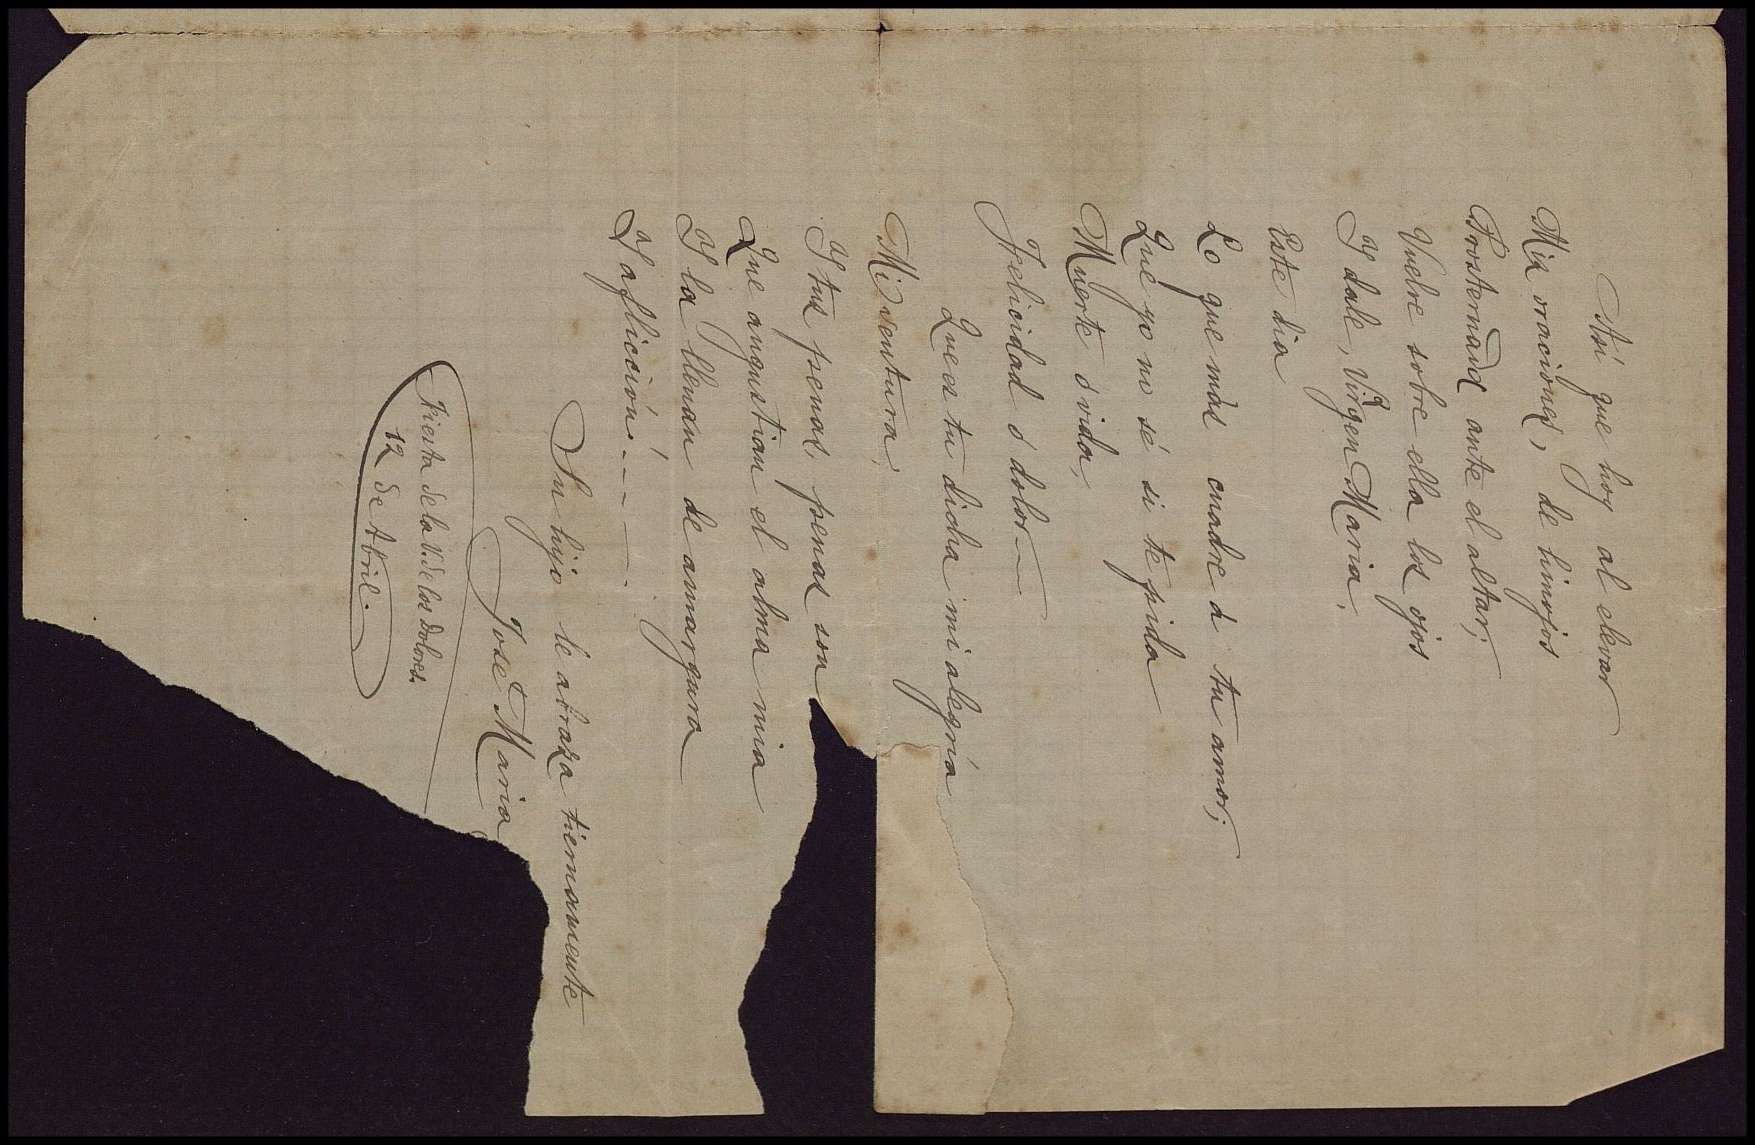 Así que hoy al elevar
Mis oraciones, de hinojos
Prosternand ante el altar;
Vuelve sobre ella los ojos
I dale, Virgen Maria,
Este dia
Lo que más cuadre á tu amor;
Que yo no sé si te pida
Muerte ó vida,
Felicidad ó dolor—
Que es tu dicha mi alegría
Mi ventura;
I tus penas, penas son
Que angustian el alma mia
I la llenan de amargura
I aflicción.....
Su hijo le abraza tiernamente
José Maria
Fiesta de la V. de los Dolores.
12 de Abril.